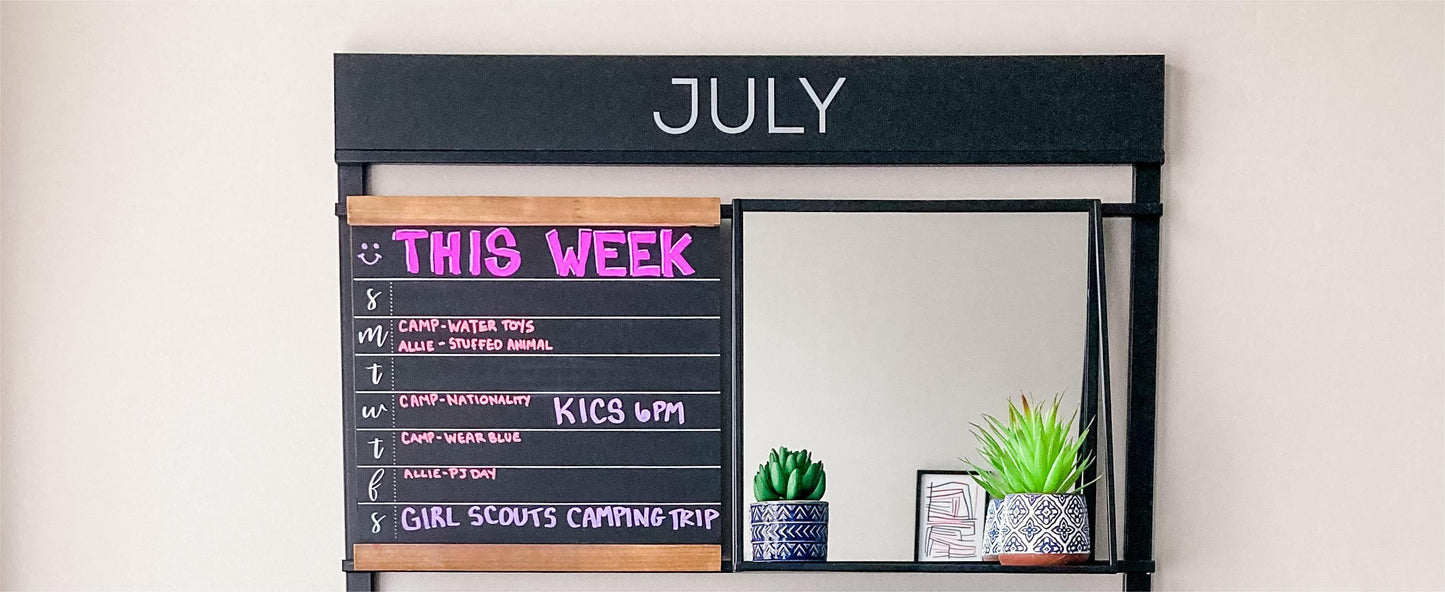 JULY
THIS WEEK
s
m CAMP-WATER TOYS
ALLIE - STUFFED ANIMAL
t
w CAMP-NATIONALITY KICS 6PM
t CAMP-WEAR BLUE
f ALLIE-PJ DAY
s GIRL SCOUTS CAMPING TRIP